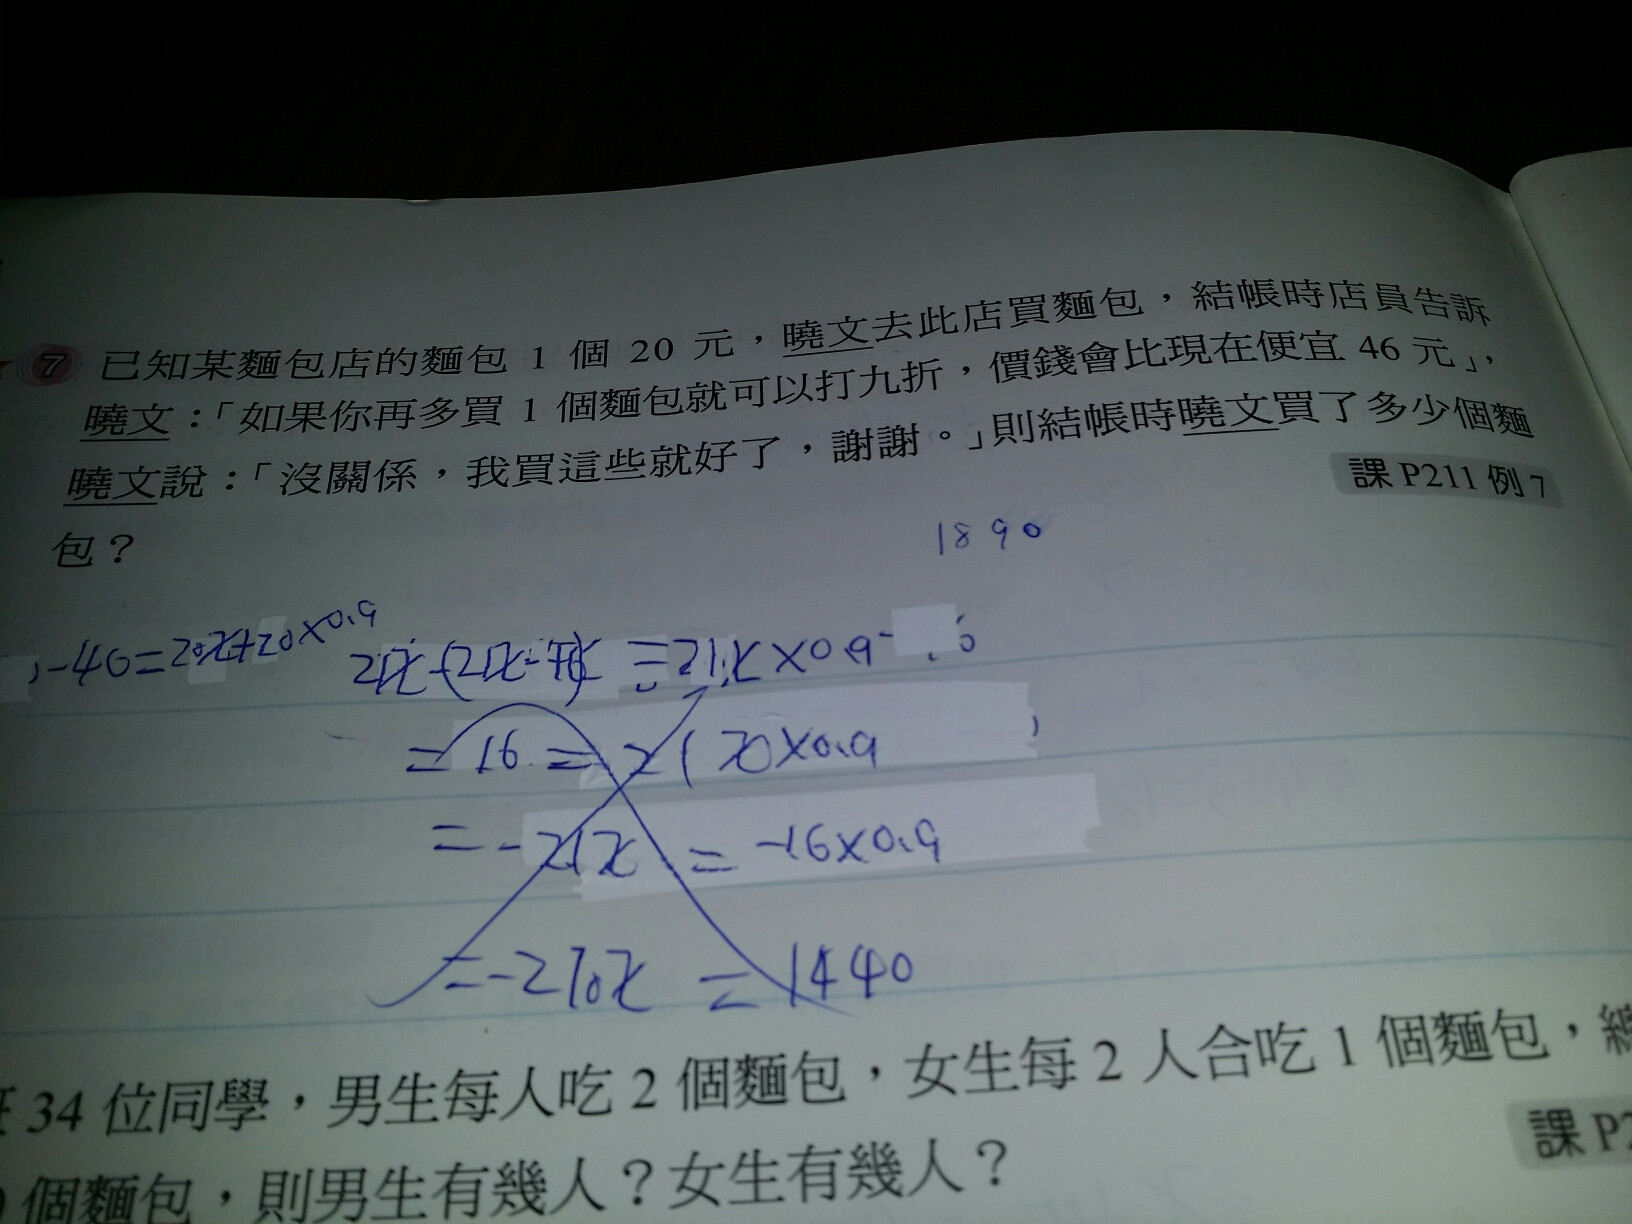 7 已知某麵包店的麵包 1 個 20 元，曉文去此店買麵包，結帳時店員告訴
曉文：「如果你再多買 1 個麵包就可以打九折，價錢會比現在便宜 46 元」，
曉文說：「沒關係，我買這些就好了，謝謝。」則結帳時曉文買了多少個麵
包？
課 P211 例 7
1890
-40=20x+20×0.9
=21x×0.9
=16=21x×0.9
=-21x=-16×0.9
=-210x=1440
34 位同學，男生每人吃 2 個麵包，女生每 2 人合吃 1 個麵包，總
課 P2
個麵包，則男生有幾人？女生有幾人？